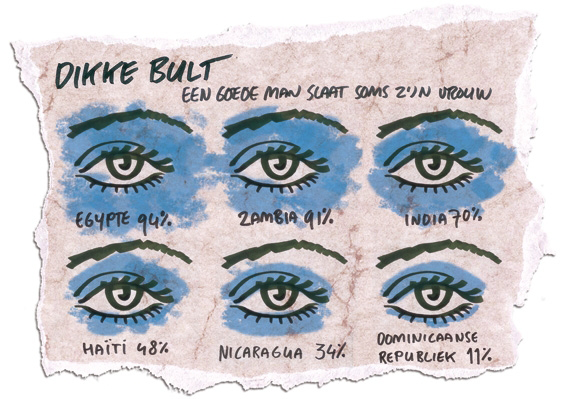 DIKKE BULT
EEN GOEDE MAN SLAAT SOMS Z'N VROUW
EGYPTE 94%
ZAMBIA 91%
INDIA 70%
HAÏTI 48%
NICARAGUA 34%
DOMINICAANSE
REPUBLIEK 11%